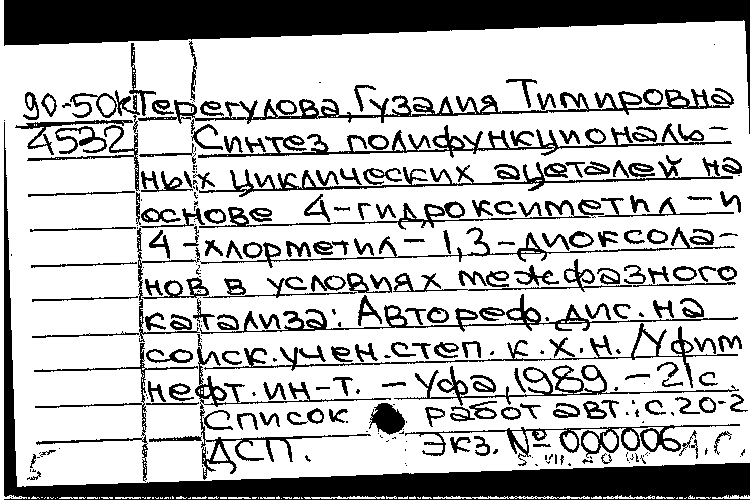 90-50к Терегулова, Гузалия Тимировна
4532 Синтез полифункциональ-
ных циклических ацеталей на
основе 4-гидроксиметил-и
4-хлорметил-1,3-диоксола-
нов в условиях межфазного
катализа: Автореф. дис. на
соиск. учен. степ. к. х. н. / Уфим
нефт. ин-т. - Уфа, 1989. - 21 с.
Список работ авт.: с. 20-2
ДСП. Экз. № 000006 А.С.
5